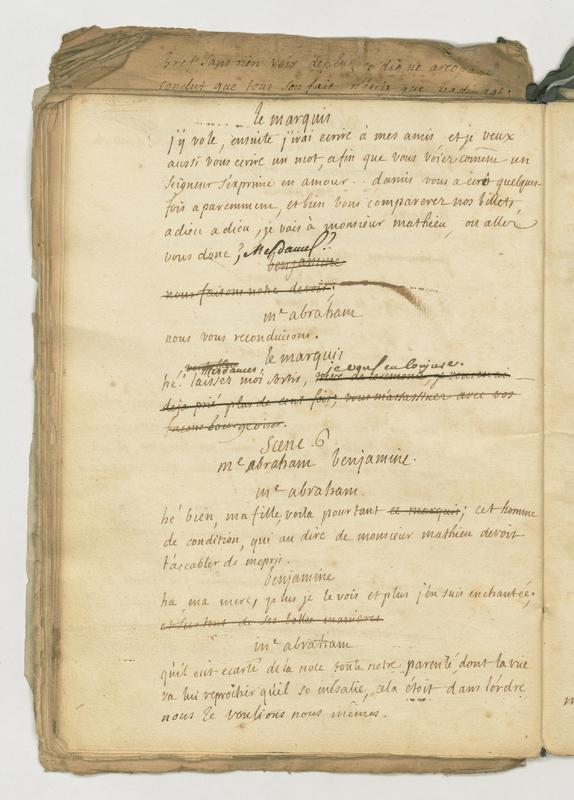 bret sans rien voir de plus ce digne areopage
conclut que tout son fait n'etoit que badinage.
le marquis
j'y vole, ensuite j'irai ecrire à mes amis et je veux
aussi vous ecrire un mot, afin que vous voiez comme un
seigneur s'exprime en amour.. damis vous a ecrit quelques
fois aparemment, et bien vous comparerez nos billets
adieu adieu, je vais à monsieur mathieu, où allez
vous donc, Mesdames??
benjamine
nous faisons notre devoir.
me abraham
nous vous reconduisons.
le marquis
Mesdames;
hé! laissez moi sortir, je vous en conjure.
deja prié plus de cent fois, vous m'assassinez avec vos
facons bourgeoises.
Scene 6
me abraham benjamine.
me abraham.
hé bien, ma fille, voila pourtant ce marquis; cet homme
de condition, qui au dire de monsieur mathieu devoit
t'accabler de mepris.
benjamine
ha, ma mere, plus je le vois et plus j'en suis enchantée;
et surtout de ses belles manieres
me abraham
qu'il eut ecarté de la noce toute notre parenté, dont la vüe
va lui reprocher qu'il se mésalie, cela étoit dans l'ordre
nous le voulions nous mêmes.